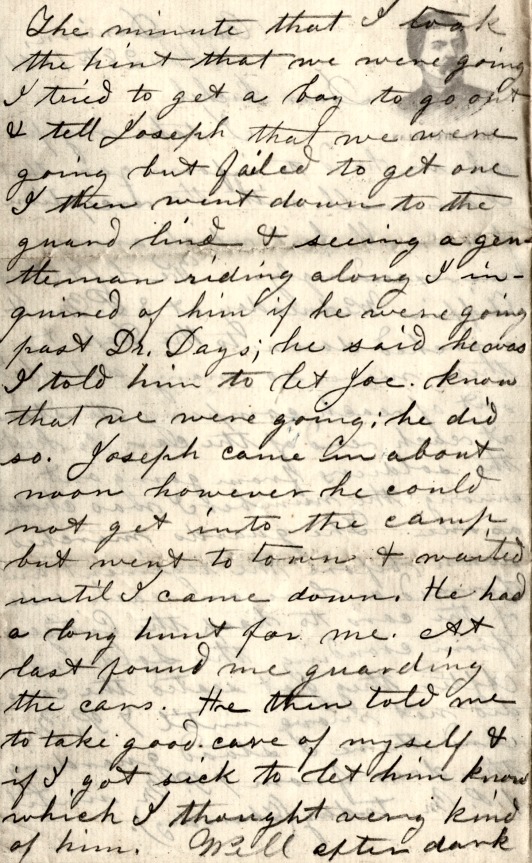 The minute that I took
the hint that we were going
I tried to get a boy to go out
& tell Joseph that we were
going but failed to get one
I then went down to the
guard line & seeing a gen-
tleman riding along I in-
quired of him if he were going
past Dr. Days; he said he was
I told him to let Joe. know
that we were going; he did
so. Joseph came in about
noon however he could
not get into the camp
but went to town & waited
until I came down. He had
a long hunt for me. At
last found me guarding
the cars. He then told me
to take good care of myself &
if I got sick to let him know
which I thought very kind
of him. Well after dark